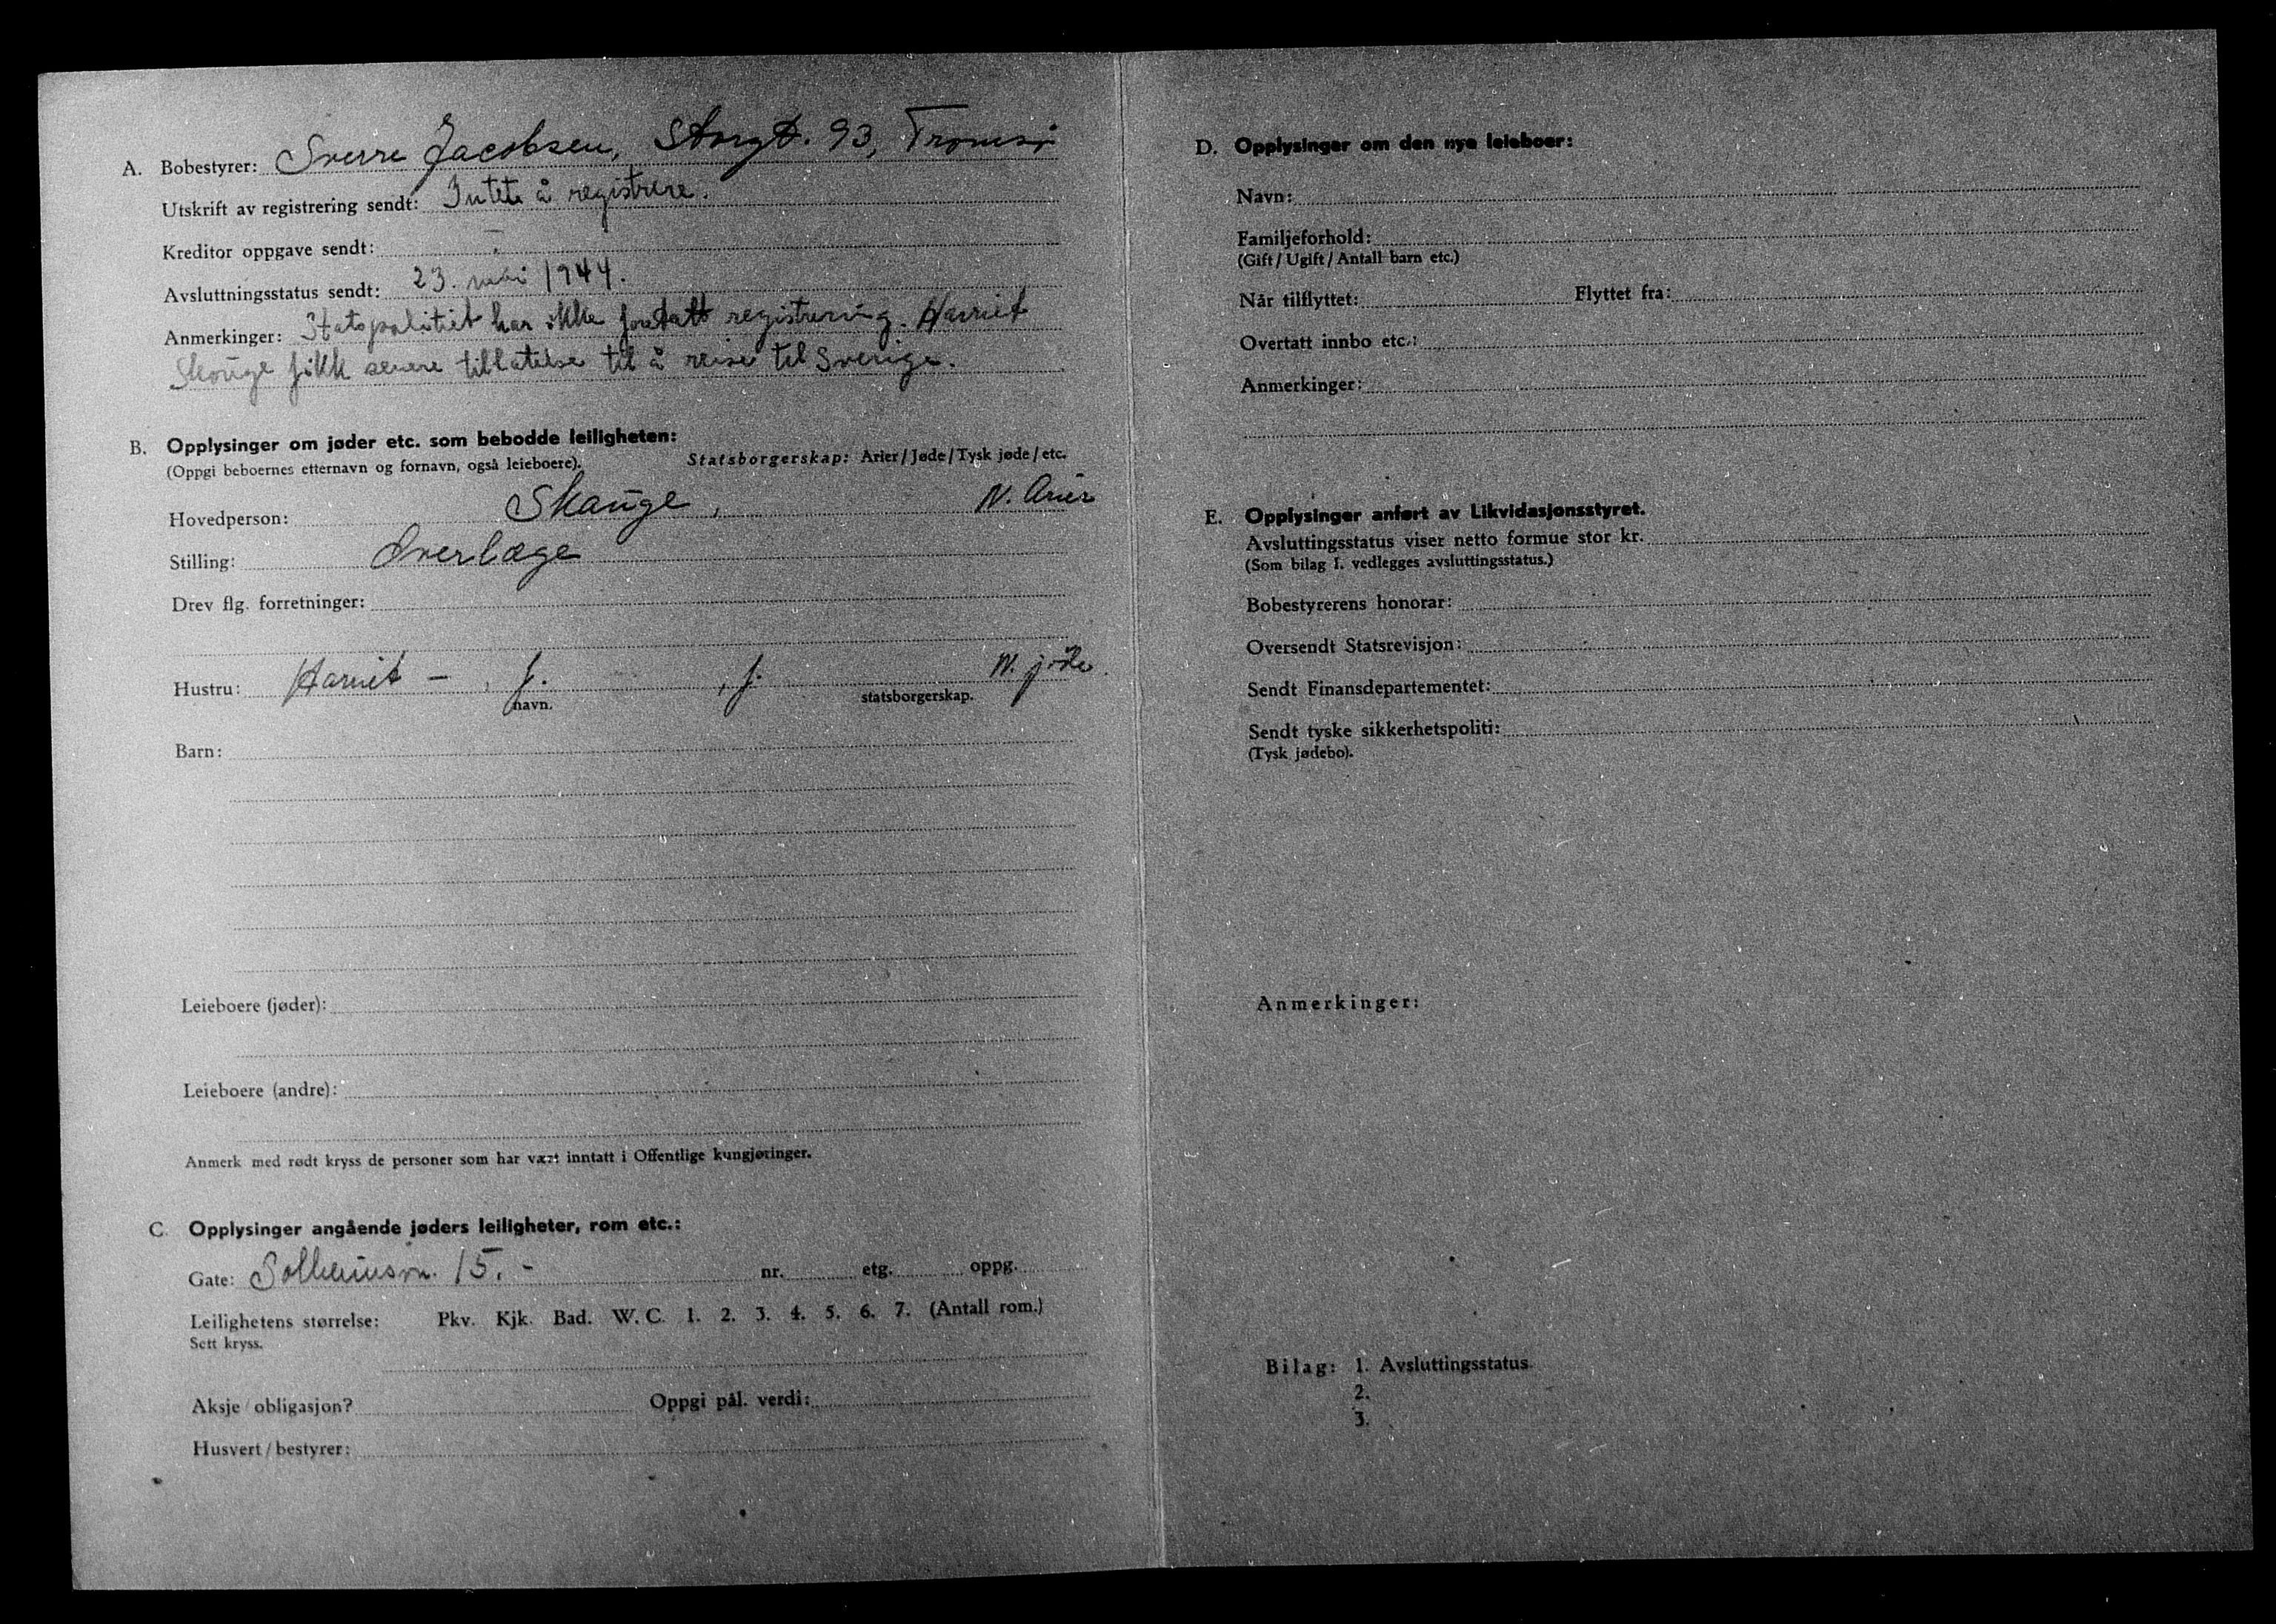 A. Bobestyrer: Sverre Jacobsen, Storgt. 93, Tromsø
Utskrift av registrering sendt: Intet å registrere.
Kreditor oppgave sendt:
Avsluttningsstatus sendt: 23. mai 1944.
Anmerkinger: Statspolitiet har ikke foretatt registrering. Harriet
Skouge fikk senere tillatelse til å reise til Sverige.
B. Opplysinger om jøder etc. som bebodde leiligheten:
(Oppgi beboernes etternavn og fornavn, også leieboere). Statsborgerskap: Arier/Jøde/Tysk jøde/etc.
Hovedperson: Skauge, N. Arier
Stilling: Overlæge
Drev flg. forretninger:
Hustru: Harriet –, f. , f. N. jøde.
navn. statsborgerskap.
Barn:
Leieboere (jøder):
Leieboere (andre):
Anmerk med rødt kryss de personer som har vært inntatt i Offentlige kungjøringer.
C. Opplysinger angående jøders leiligheter, rom etc.:
Gate: Solheimsvn. 15. – nr. etg. oppg.
Leilighetens størrelse: Pkv. Kjk. Bad. W.C. 1. 2. 3. 4. 5. 6. 7. (Antall rom.)
Sett kryss.
Aksje/obligasjon? Oppgi pål. verdi:
Husvert/bestyrer:
D. Opplysinger om den nye leieboer:
Navn:
Familjeforhold:
(Gift/Ugift/Antall barn etc.)
Når tilflyttet: Flyttet fra:
Overtatt innbo etc.:
Anmerkinger:
E. Opplysinger anført av Likvidasjonsstyret.
Avsluttingsstatus viser netto formue stor kr.
(Som bilag I. vedlegges avsluttingsstatus.)
Bobestyrerens honorar:
Oversendt Statsrevisjon:
Sendt Finansdepartementet:
Sendt tyske sikkerhetspoliti:
(Tysk jødebo).
Anmerkinger:
Bilag: 1. Avsluttingsstatus.
2.
3.